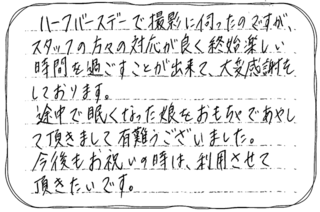 ハーフバースデーで撮影に伺ったのですが、
スタッフの方々の対応が良く終始楽しい
時間を過ごすことが出来て、大変感謝を
しております。
途中で眠くなった娘をおもちゃであやし
て頂きまして有難うございました。
今後もお祝いの時は、利用させて
頂きたいです。